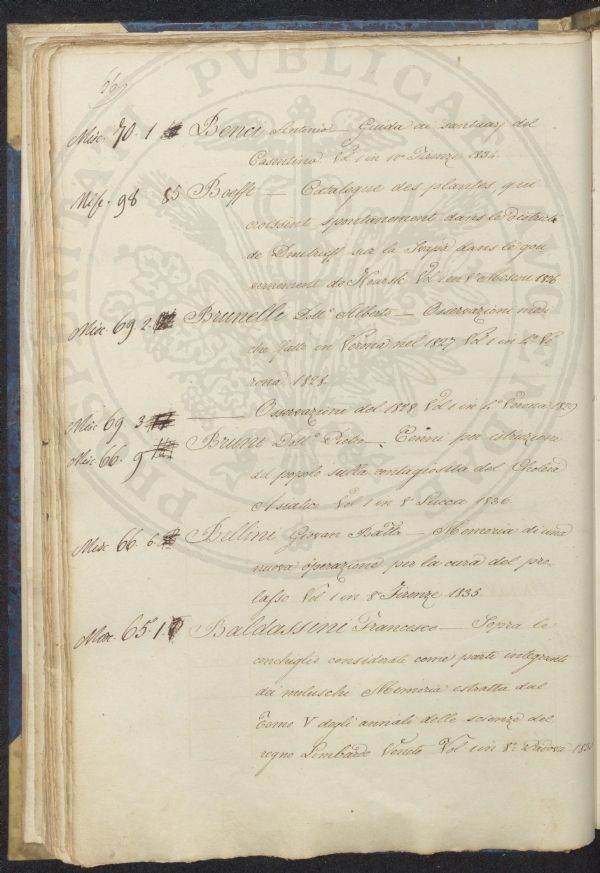 Misc. 70. 1 Benci Antonio — Guida ai santuarj del
Casentino Vol 1 in 10° Firenze 1834.
Misc. 98 85 Boeffe — Catalogue des plantes, qui
croissent spontanement dans le district
de Dmitrieff sur la Svapa dans le gou
vernement de Koursk Vol 1 en 8° Moscou 1826
Misc. 69 2. Brunelli Dott.r Alberto — Osservazioni medi
che fatte in Verona nel 1827 Vol 1 in 4° Ve
rona 1828.
Misc. 69 3 ——— Osservazione del 1828 Vol 1 in 4° Verona 1829
Misc. 66. 9 Bruni Dott.r Pietro — Cenni per istruzione
del popolo sulla contagiosità del Cholera
Asiatico Vol 1 in 8° Lucca 1836.
Misc. 66. 6. Bellini Giovan Batta — Memoria di una
nuova operazione per la cura del pro-
lasso Vol 1 in 8° Firenze 1835
Misc. 65. 1. Baldassini Francesco — Sopra le
conchiglie considerate come parte integrante
dei molluschi Memoria estratta dal
Tomo V degli annali delle scienze del
regno Lombardo Veneto Vol 1 in 8° Padova
PUBLICA